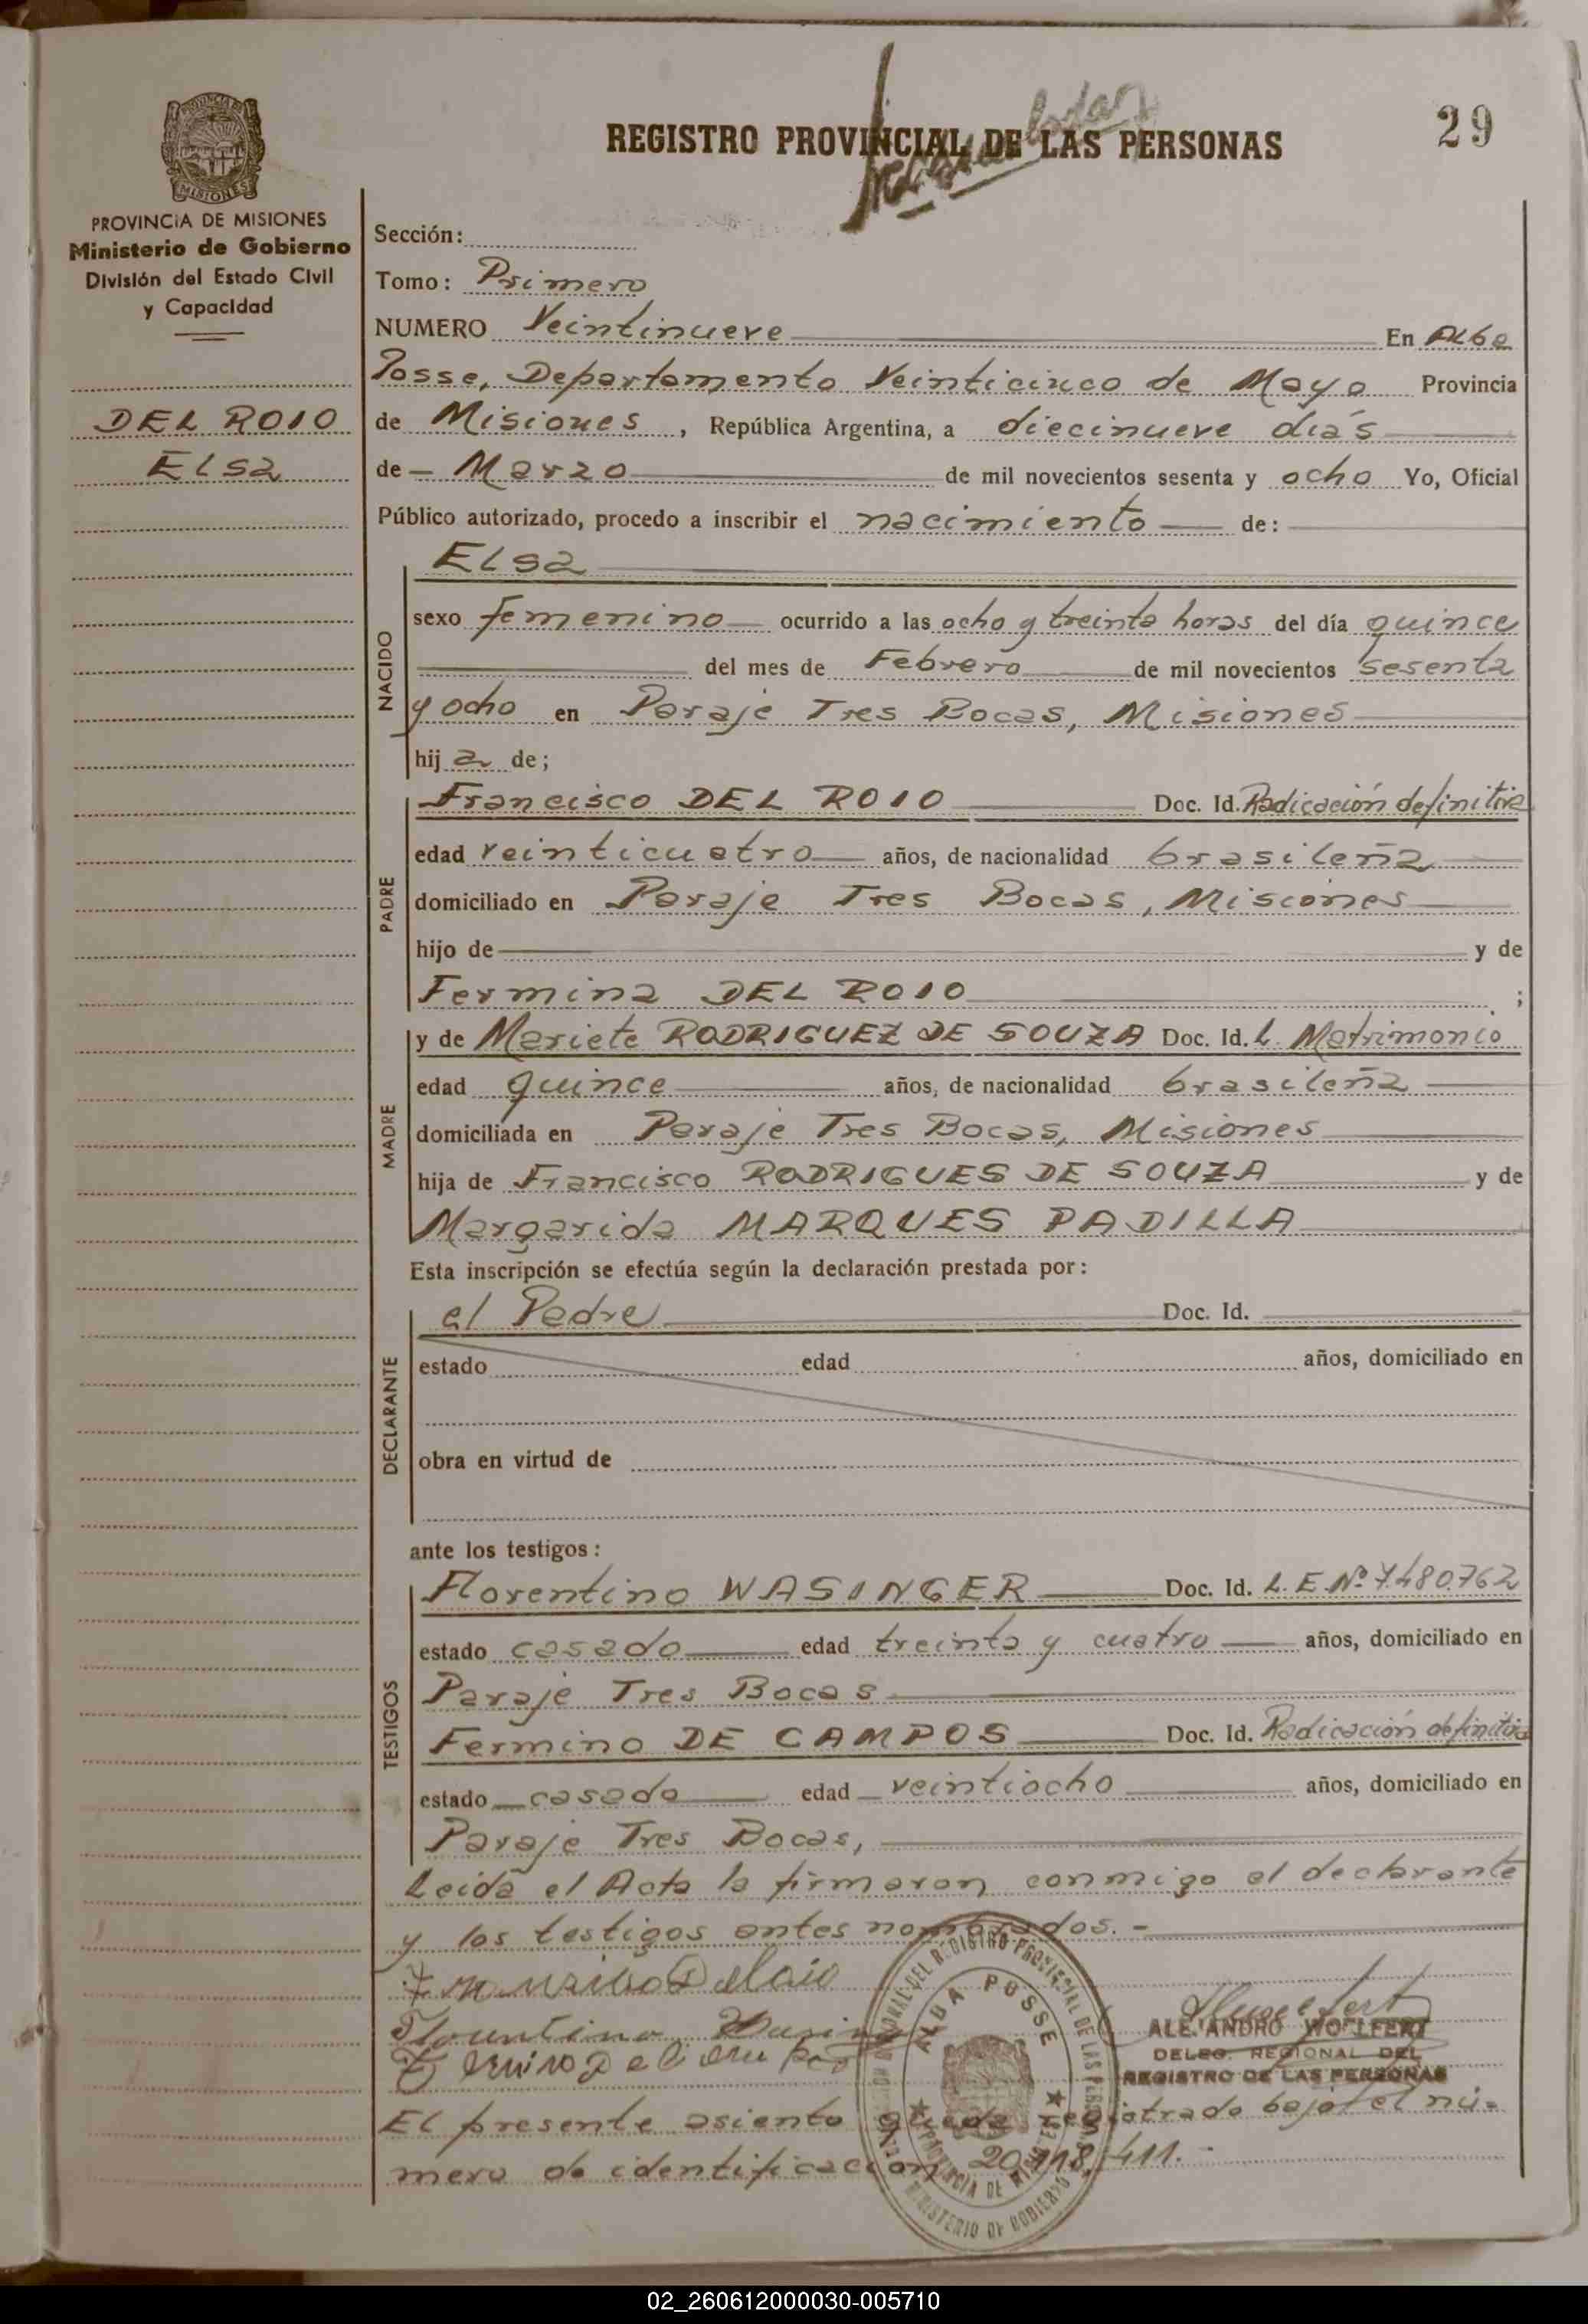 REGISTRO PROVINCIAL DE LAS PERSONAS
29
PROVINCIA DE MISIONES
PROVINCIA DE MISIONES
Ministerio de Gobierno
División del Estado Civil
y Capacidad
DEL ROIO
Elsa
Sección:
Tomo: Primero
NUMERO Veintinueve En Alba
Posse, Departamento Veinticinco de Mayo Provincia
de Misiones, República Argentina, a diecinueve días
de Marzo de mil novecientos sesenta y ocho Yo, Oficial
Público autorizado, procedo a inscribir el nacimiento de:
NACIDO
Elsa
sexo femenino ocurrido a las ocho y treinta horas del día quince
del mes de Febrero de mil novecientos sesenta
y ocho en Paraje Tres Bocas, Misiones
hija de;
PADRE
Francisco DEL ROIO Doc. Id. Radicación definitiva
edad veinticuatro años, de nacionalidad brasileña
domiciliado en Paraje Tres Bocas, Misiones
hijo de y de
Fermina DEL ROIO ;
MADRE
y de Mariete RODRIGUEZ DE SOUZA Doc. Id. L. Matrimonio
edad quince años, de nacionalidad brasileña
domiciliada en Paraje Tres Bocas, Misiones
hija de Francisco RODRIGUES DE SOUZA y de
Margarida MARQUES PADILLA
Esta inscripción se efectúa según la declaración prestada por:
DECLARANTE
el Padre Doc. Id.
estado edad años, domiciliado en
obra en virtud de
ante los testigos:
TESTIGOS
Florentino WASINGER Doc. Id. L. E. Nº 7.480.762
estado casado edad treinta y cuatro años, domiciliado en
Paraje Tres Bocas
Fermino DE CAMPOS Doc. Id. Radicación definitiva
estado casado edad veintiocho años, domiciliado en
Paraje Tres Bocas,
Leida el Acta la firmaron conmigo el declarante
y los testigos antes nombrados.-
ALBA POSSE
PROVINCIA DE MISIONES
MINISTERIO DE GOBIERNO
ALEJANDRO WOLLFERT
DELEG. REGIONAL DEL
REGISTRO DE LAS PERSONAS
El presente asiento queda registrado bajo el nú-
mero de identificación 20.118.411.-
02_260612000030-005710